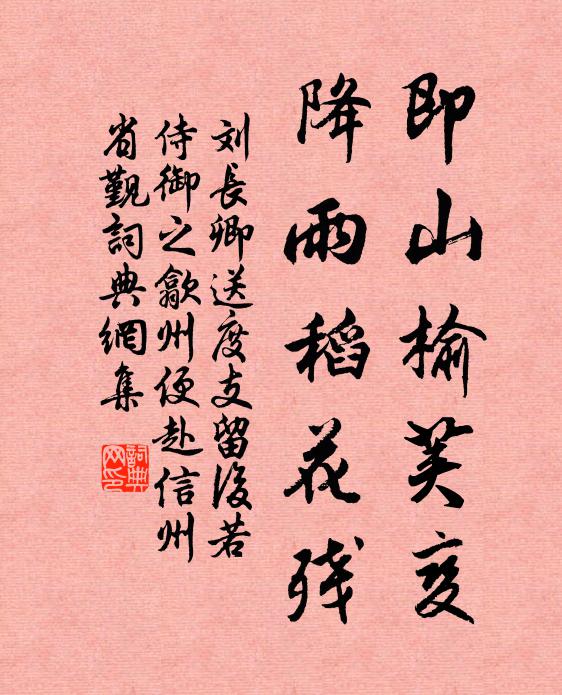 即山榆荚变
降雨稻花残
刘長卿送度支留後若
侍御之歙州便赴信州
省覲詞典網集
詞典
网印